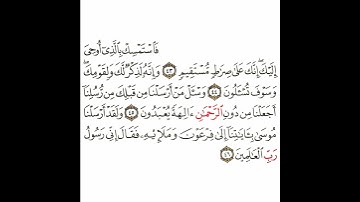 فَٱسْتَمْسِكْ بِٱلَّذِىٓ أُوحِىَ
إِلَيْكَ ۖ إِنَّكَ عَلَىٰ صِرَٰطٍ مُّسْتَقِيمٍ ﴿٤٣﴾ وَإِنَّهُۥ لَذِكْرٌ لَّكَ وَلِقَوْمِكَ ۖ
وَسَوْفَ تُسْـَٔلُونَ ﴿٤٤﴾ وَسْـَٔلْ مَنْ أَرْسَلْنَا مِن قَبْلِكَ مِن رُّسُلِنَآ
أَجَعَلْنَا مِن دُونِ ٱلرَّحْمَٰنِ ءَالِهَةً يُعْبَدُونَ ﴿٤٥﴾ وَلَقَدْ أَرْسَلْنَا
مُوسَىٰ بِـَٔايَٰتِنَآ إِلَىٰ فِرْعَوْنَ وَمَلَإِي۟هِۦ فَقَالَ إِنِّى رَسُولُ
رَبِّ ٱلْعَٰلَمِينَ ﴿٤٦﴾